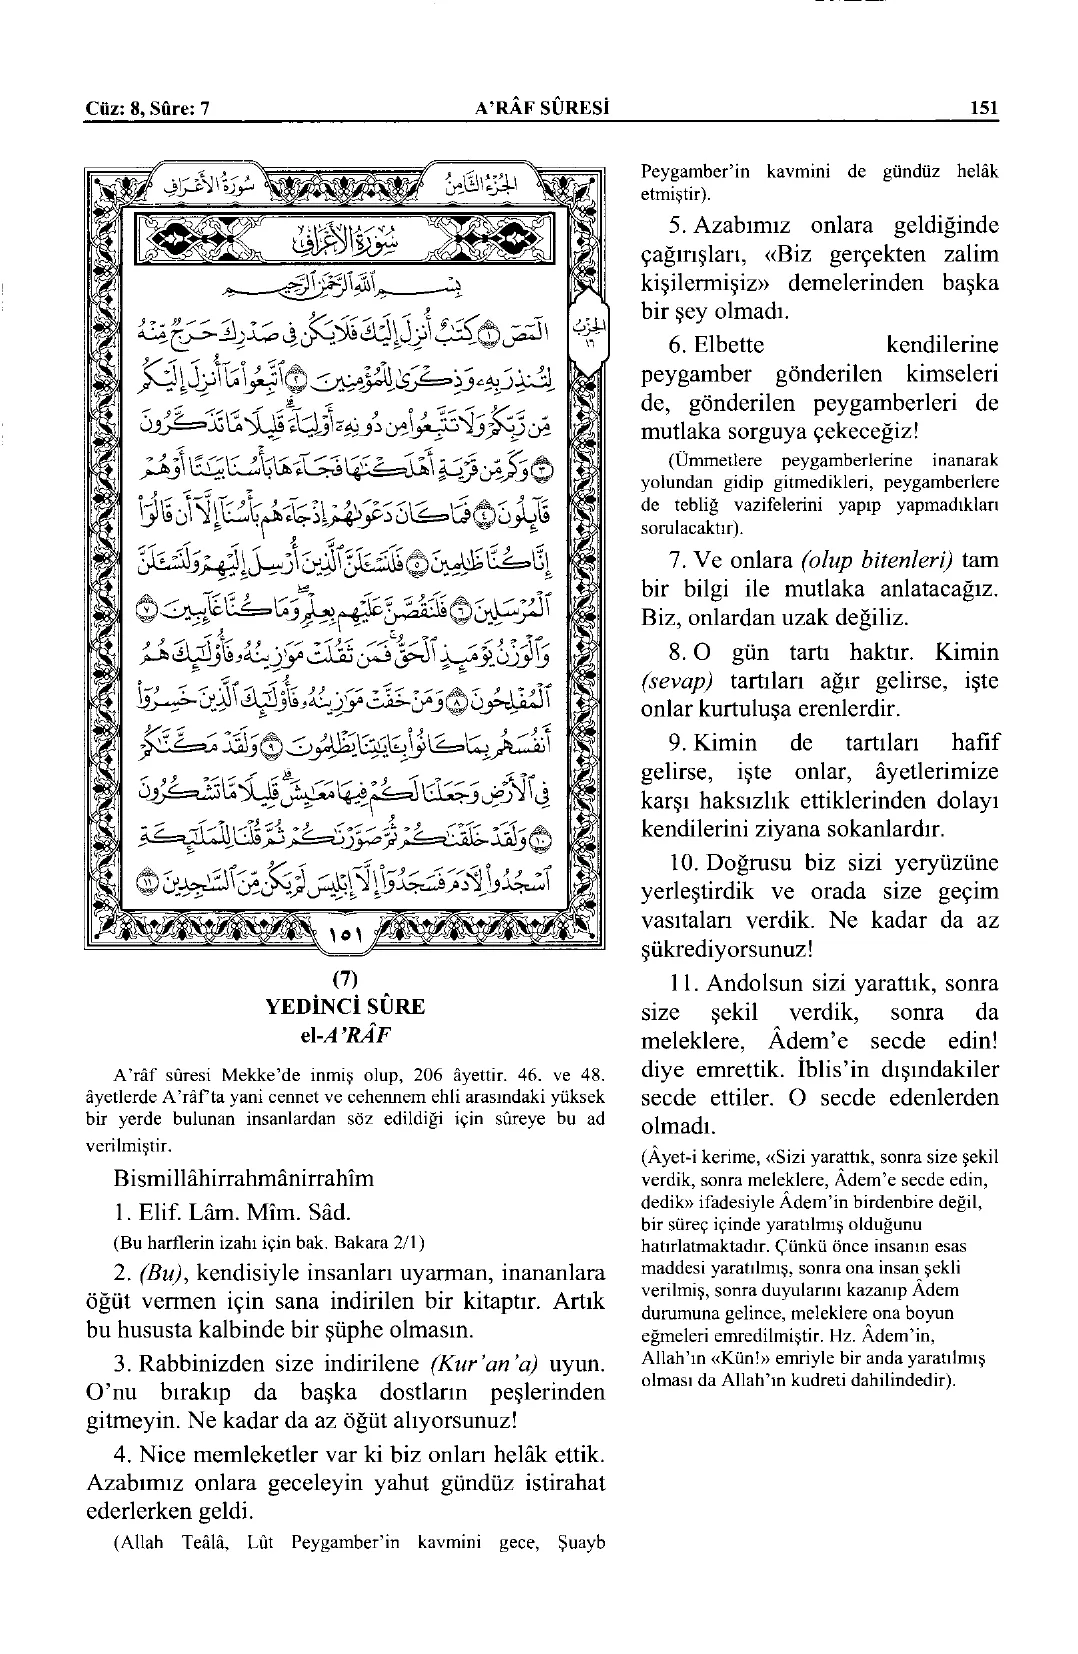 Cüz: 8, Sûre: 7 A’RÂF SÛRESİ 151
سورة الأعراف الجزء الثامن
سورة الأعراف
بسم الله الرحمن الرحيم
الحزب ١٦
الٓمٓصٓ ﴿١﴾ كِتَابٌ أُنْزِلَ إِلَيْكَ فَلَا يَكُنْ فِي صَدْرِكَ حَرَجٌ مِنْهُ
لِتُنْذِرَ بِهِ وَذِكْرَى لِلْمُؤْمِنِينَ ﴿٢﴾ اتَّبِعُوا مَا أُنْزِلَ إِلَيْكُمْ
مِنْ رَبِّكُمْ وَلَا تَتَّبِعُوا مِنْ دُونِهِ أَوْلِيَاءَ قَلِيلًا مَا تَذَكَّرُونَ
﴿٣﴾ وَكَمْ مِنْ قَرْيَةٍ أَهْلَكْنَاهَا فَجَاءَهَا بَأْسُنَا بَيَاتًا أَوْ هُمْ
قَائِلُونَ ﴿٤﴾ فَمَا كَانَ دَعْوَاهُمْ إِذْ جَاءَهُمْ بَأْسُنَا إِلَّا أَنْ قَالُوا
إِنَّا كُنَّا ظَالِمِينَ ﴿٥﴾ فَلَنَسْأَلَنَّ الَّذِينَ أُرْسِلَ إِلَيْهِمْ وَلَنَسْأَلَنَّ
الْمُرْسَلِينَ ﴿٦﴾ فَلَنَقُصَّنَّ عَلَيْهِمْ بِعِلْمٍ وَمَا كُنَّا غَائِبِينَ ﴿٧﴾
وَالْوَزْنُ يَوْمَئِذٍ الْحَقُّ فَمَنْ ثَقُلَتْ مَوَازِينُهُ فَأُولَئِكَ هُمُ
الْمُفْلِحُونَ ﴿٨﴾ وَمَنْ خَفَّتْ مَوَازِينُهُ فَأُولَئِكَ الَّذِينَ خَسِرُوا
أَنْفُسَهُمْ بِمَا كَانُوا بِآيَاتِنَا يَظْلِمُونَ ﴿٩﴾ وَلَقَدْ مَكَّنَّاكُمْ
فِي الْأَرْضِ وَجَعَلْنَا لَكُمْ فِيهَا مَعَايِشَ قَلِيلًا مَا تَشْكُرُونَ
﴿١٠﴾ وَلَقَدْ خَلَقْنَاكُمْ ثُمَّ صَوَّرْنَاكُمْ ثُمَّ قُلْنَا لِلْمَلَائِكَةِ
اسْجُدُوا لِآدَمَ فَسَجَدُوا إِلَّا إِبْلِيسَ لَمْ يَكُنْ مِنَ السَّاجِدِينَ ﴿١١﴾
١٥١
(7)
YEDİNCİ SÛRE
el-A’RÂF
A’râf sûresi Mekke’de inmiş olup, 206 âyettir. 46. ve 48.
âyetlerde A’râf’ta yani cennet ve cehennem ehli arasındaki yüksek
bir yerde bulunan insanlardan söz edildiği için sûreye bu ad
verilmiştir.
Bismillâhirrahmânirrahîm
1. Elif. Lâm. Mîm. Sâd.
(Bu harflerin izahı için bak. Bakara 2/1)
2. (Bu), kendisiyle insanları uyarman, inananlara
öğüt vermen için sana indirilen bir kitaptır. Artık
bu hususta kalbinde bir şüphe olmasın.
3. Rabbinizden size indirilene (Kur’an’a) uyun.
O’nu bırakıp da başka dostların peşlerinden
gitmeyin. Ne kadar da az öğüt alıyorsunuz!
4. Nice memleketler var ki biz onları helâk ettik.
Azabımız onlara geceleyin yahut gündüz istirahat
ederlerken geldi.
(Allah Teâlâ, Lût Peygamber’in kavmini gece, Şuayb
Peygamber’in kavmini de gündüz helâk
etmiştir).
5. Azabımız onlara geldiğinde
çağırışları, «Biz gerçekten zalim
kişilermişiz» demelerinden başka
bir şey olmadı.
6. Elbette kendilerine
peygamber gönderilen kimseleri
de, gönderilen peygamberleri de
mutlaka sorguya çekeceğiz!
(Ümmetlere peygamberlerine inanarak
yolundan gidip gitmedikleri, peygamberlere
de tebliğ vazifelerini yapıp yapmadıkları
sorulacaktır).
7. Ve onlara (olup bitenleri) tam
bir bilgi ile mutlaka anlatacağız.
Biz, onlardan uzak değiliz.
8. O gün tartı haktır. Kimin
(sevap) tartıları ağır gelirse, işte
onlar kurtuluşa erenlerdir.
9. Kimin de tartıları hafif
gelirse, işte onlar, âyetlerimize
karşı haksızlık ettiklerinden dolayı
kendilerini ziyana sokanlardır.
10. Doğrusu biz sizi yeryüzüne
yerleştirdik ve orada size geçim
vasıtaları verdik. Ne kadar da az
şükrediyorsunuz!
11. Andolsun sizi yarattık, sonra
size şekil verdik, sonra da
meleklere, Âdem’e secde edin!
diye emrettik. İblis’in dışındakiler
secde ettiler. O secde edenlerden
olmadı.
(Âyet-i kerime, «Sizi yarattık, sonra size şekil
verdik, sonra meleklere, Âdem’e secde edin,
dedik» ifadesiyle Âdem’in birdenbire değil,
bir süreç içinde yaratılmış olduğunu
hatırlatmaktadır. Çünkü önce insanın esas
maddesi yaratılmış, sonra ona insan şekli
verilmiş, sonra duyularını kazanıp Âdem
durumuna gelince, meleklere ona boyun
eğmeleri emredilmiştir. Hz. Âdem’in,
Allah’ın «Kün!» emriyle bir anda yaratılmış
olması da Allah’ın kudreti dahilindedir).